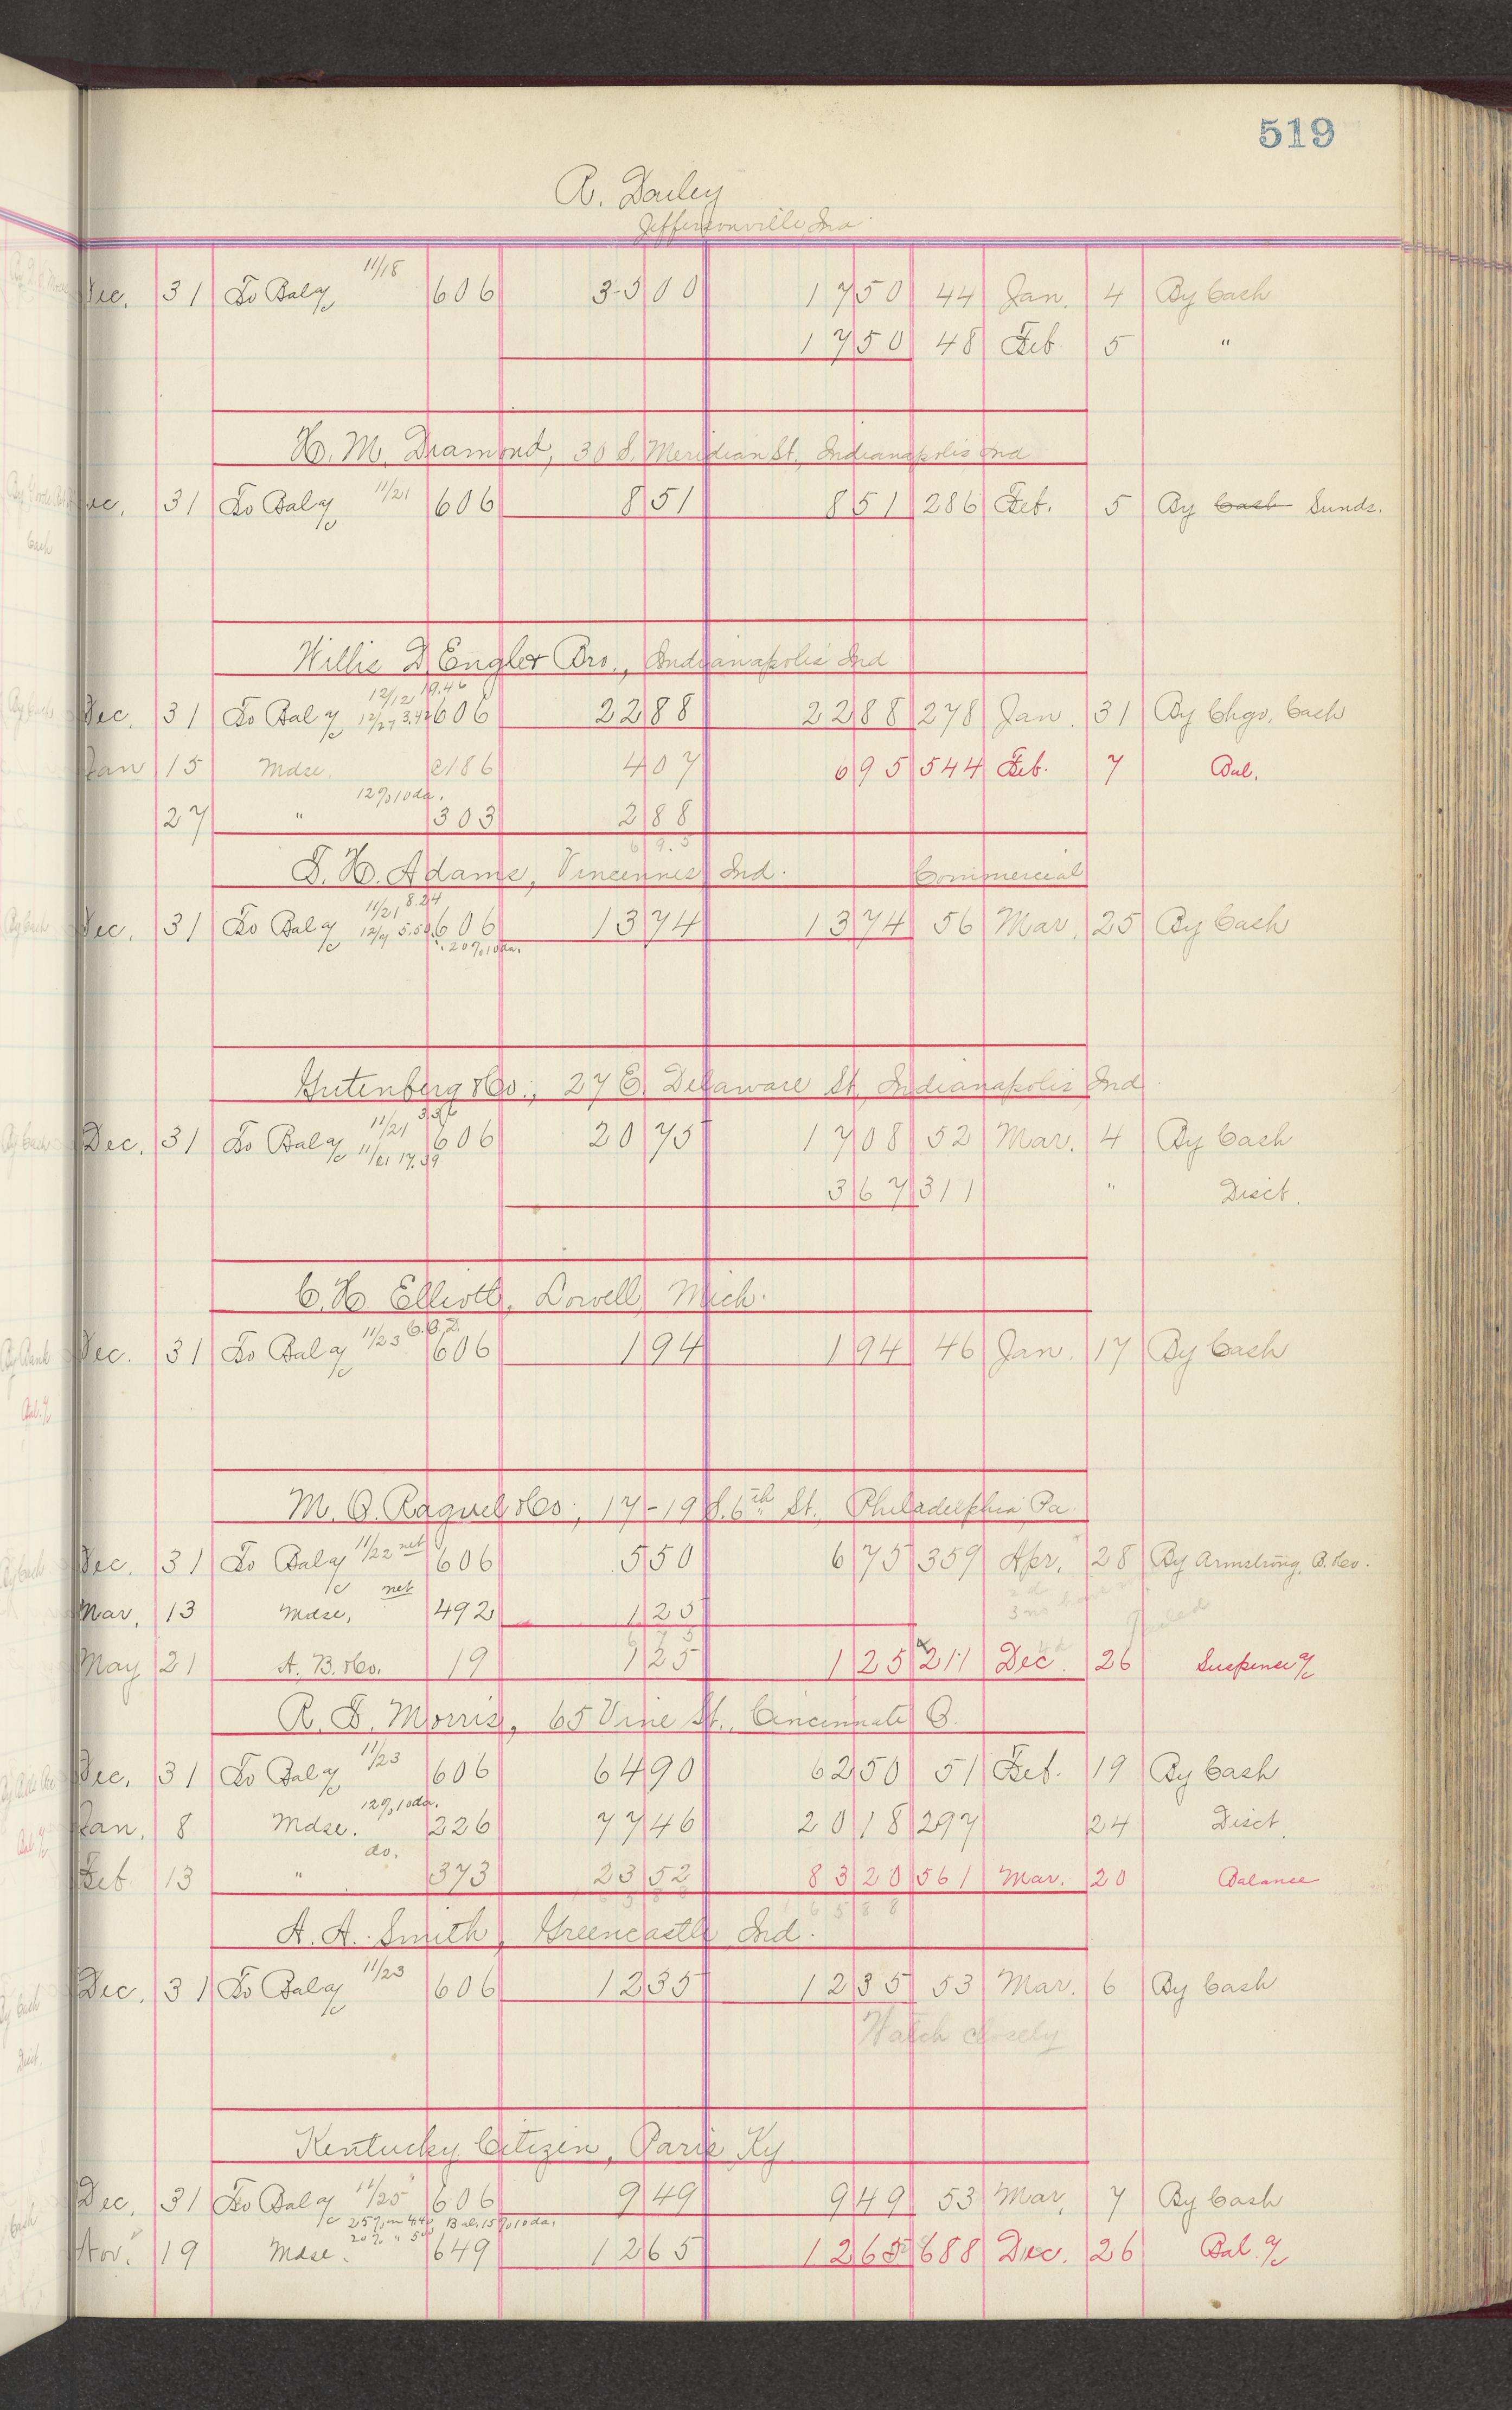 519
R. Dailey
Jeffersonville, Ind.
Dec. 31 To Bal a/c 11/18 606 35 00 17 50 44 Jan. 4 By Cash
17 50 48 Feb 5 "
H. M. Diamond, 30 S. Meridian St., Indianapolis Ind
Dec. 31 To Bal a/c 11/21 606 8 51 8 51 286 Feb. 5 By Cash Sunds.
Willis D Engler Bro., Indianapolis Ind
12/12 19.46
Dec. 31 To Bal a/c 12/27 3.42 606 22 88 22 88 278 Jan. 31 By Chgo, Cash
Jan 15 Mdse. 186 4 07 6 95 544 Feb. 7 Bal.
12% 10 da.
27 " 303 2 88
6 9.5
T. H. Adams, Vincennes Ind. Commercial
11/21 8.24
Dec. 31 To Bal a/c 12/9 5.50 606 13 74 13 74 56 Mar. 25 By Cash
20% 10 da.
Gutenberg & Co., 27 E. Delaware St., Indianapolis Ind
11/21 3.36
Dec. 31 To Bal a/c 606 20 75 17 08 52 Mar. 4 By Cash
11/21 17.39
3 67 311 " Disct.
C. H Elliott, Lowell Mich.
Dec. 31 To Bal a/c 11/23 C.O.D. 606 1 94 1 94 46 Jan. 17 By Cash
M. O. Raguel & Co., 17-19 S. 6th St., Philadelphia Pa.
Dec. 31 To Bal a/c 11/22 net 606 5 50 6 75 359 Apr. 28 By Armstrong, B. & Co.
net
Mar. 13 Mdse. 492 1 25
6 7 5
May 21 A. B. & Co. 19 1 25 1 25 211 Dec. 26 Suspense a/c
R. T. Morris, 65 Vine St., Cincinnati O.
Dec. 31 To Bal a/c 11/23 606 64 90 62 50 51 Feb. 19 By Cash
12% 10 da.
Jan. 8 Mdse. 226 77 46 20 18 297 24 Disct.
do.
Feb 13 " 373 23 52 83 20 561 Mar. 20 Balance
1 6 5 8 8 1 6 5 8 8
A. A. Smith, Greencastle Ind.
Dec. 31 To Bal a/c 11/23 606 12 35 12 35 53 Mar. 6 By Cash
Watch closely
Kentucky Citizen, Paris Ky
Dec. 31 To Bal a/c 11/25 606 9 49 9 49 53 Mar. 7 By Cash
25% on 4.40 Bal. 15% 10 da.
20% " 500
Nov. 19 Mdse. 649 12 65 12 65 688 Dec. 26 Bal. a/c